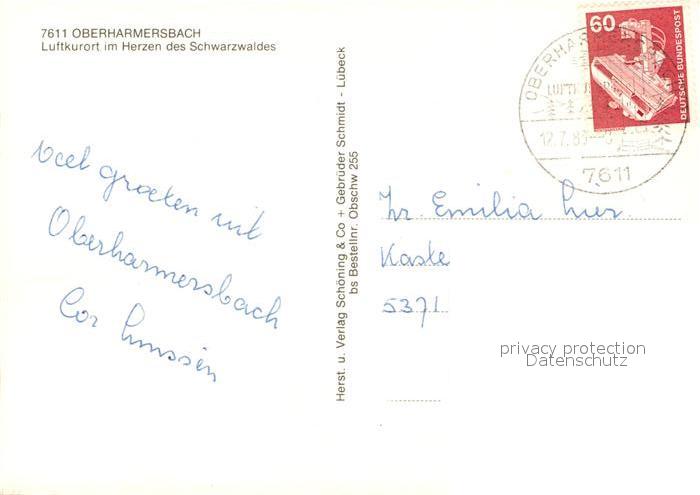 7611 OBERHARMERSBACH
Luftkurort im Herzen des Schwarzwaldes
Veel groeten uit
Oberharmersbach
Cor
Herst. u. Verlag Schöning & Co + Gebrüder Schmidt - Lübeck
bs Bestellnr. Obschw 255
60
DEUTSCHE BUNDESPOST
OBERHARME
LUFTK
12.7.8
7611
Emilia
5371
privacy protection
Datenschutz